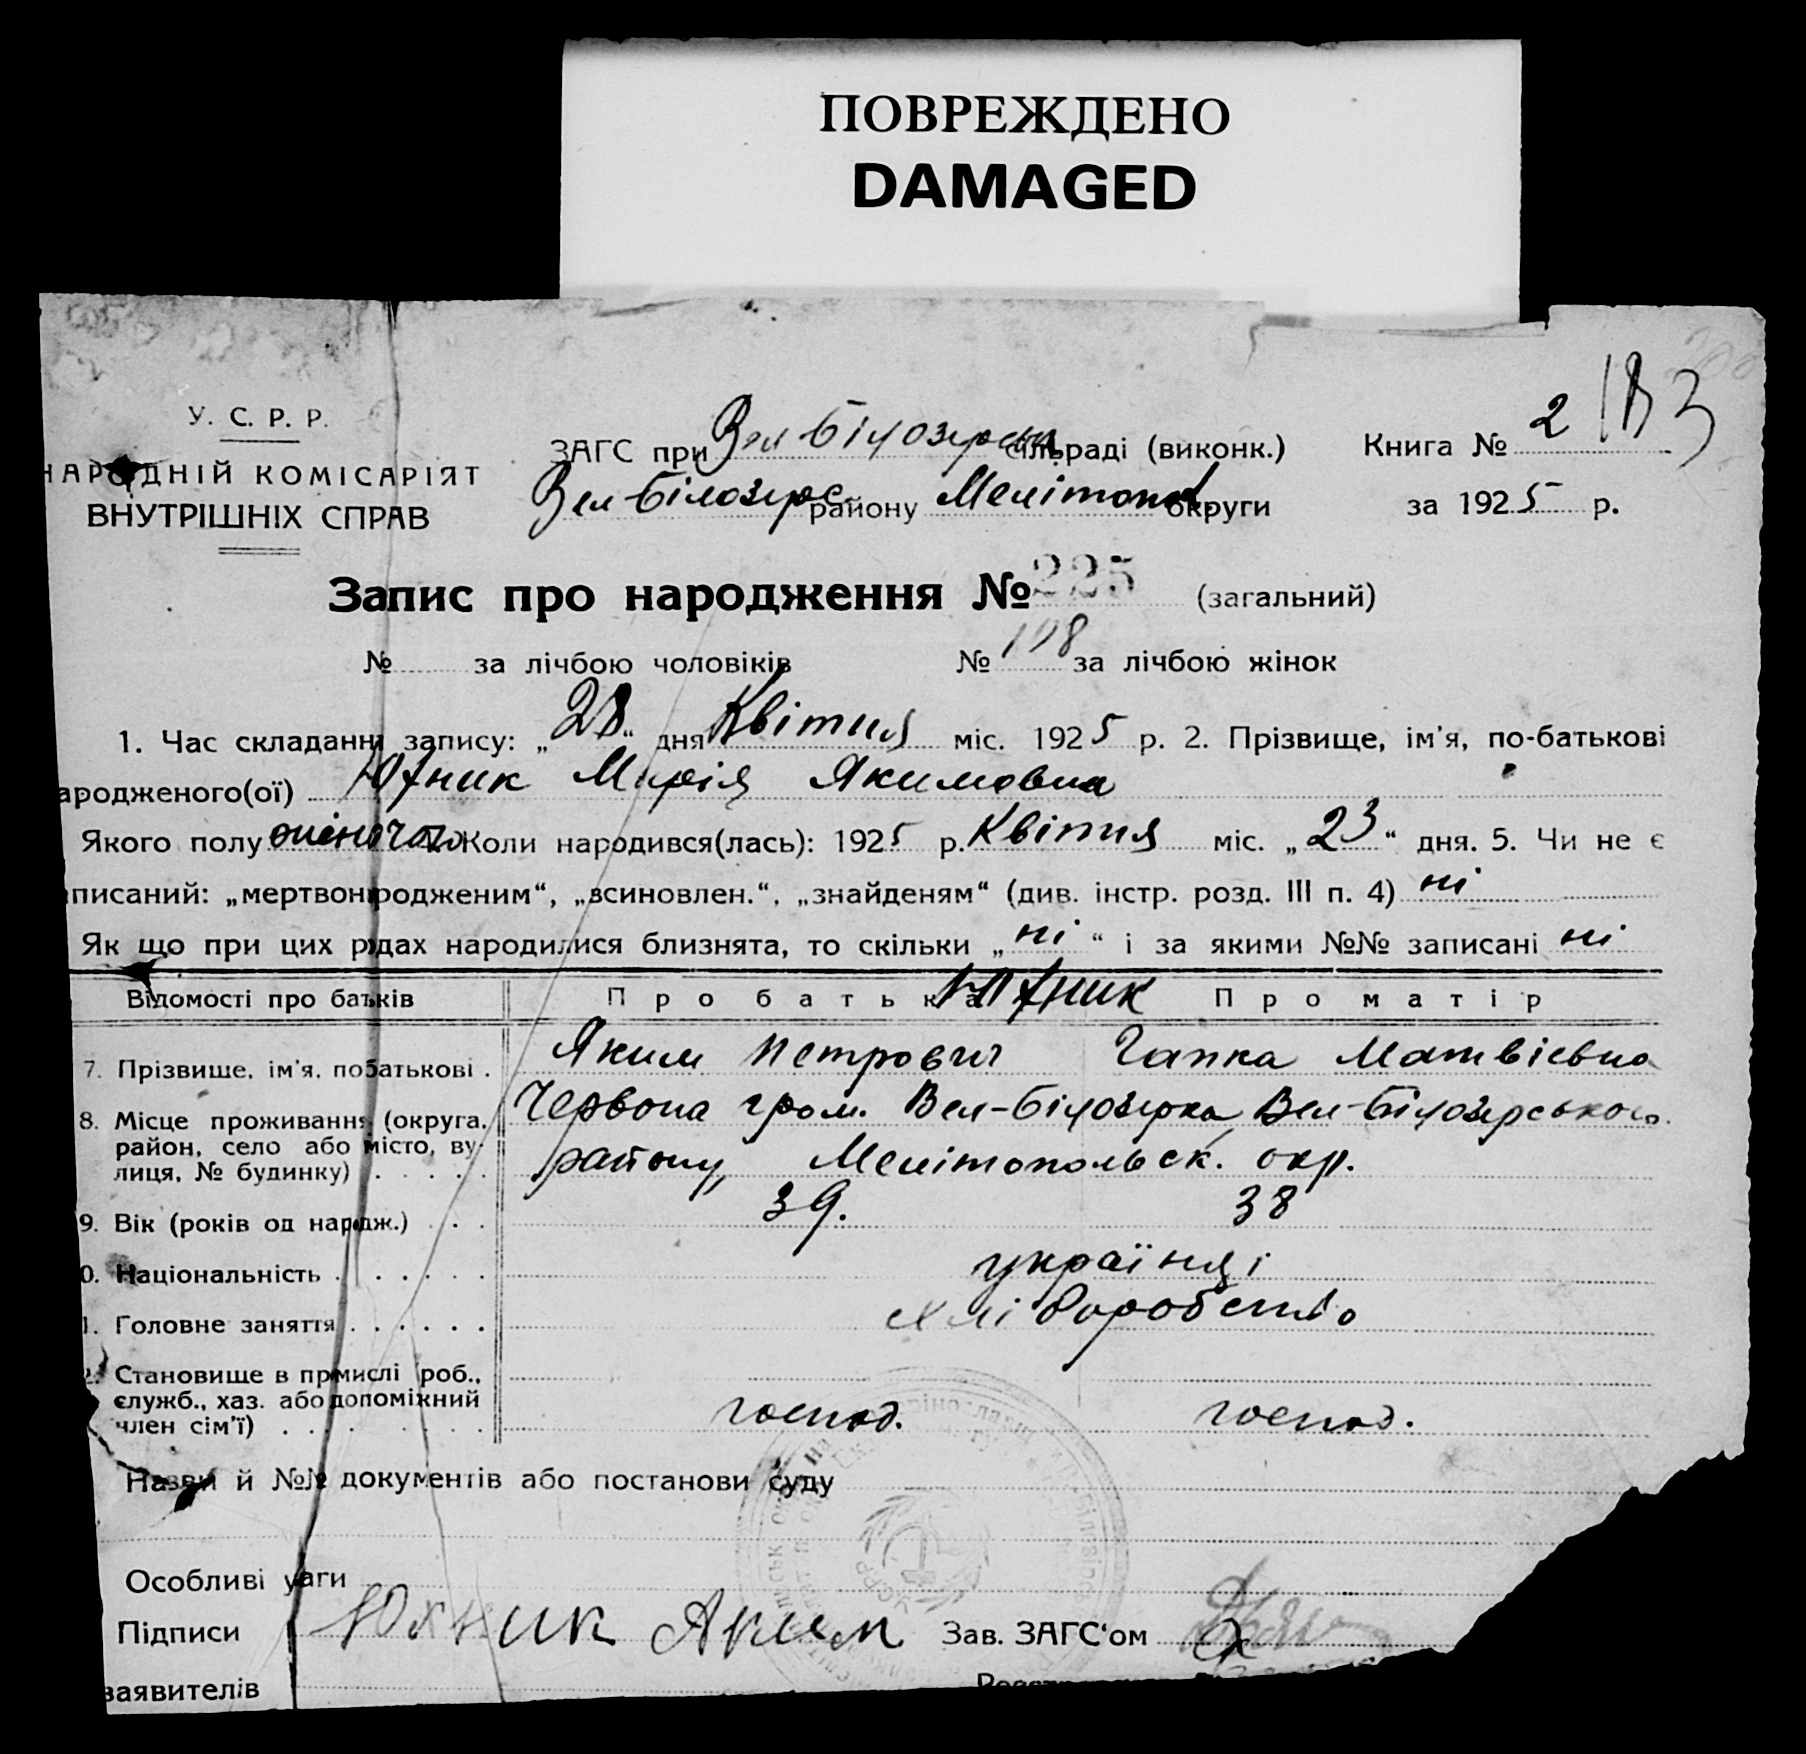 ПОВРЕЖДЕНО
DAMAGED
У. С. Р. Р.
НАРОДНІЙ КОМІСАРІЯТ
ВНУТРІШНІХ СПРАВ
ЗАГС при Вел Білозирськ сільраді (виконк.) Книга № 2
Вел-Білозирс району Мелітоп округи за 1925 р.
Запис про народження № 225 (загальний)
№ за лічбою чоловіків № 108 за лічбою жінок
1. Час складання запису: „28“ дня Квітня міс. 1925 р. 2. Прізвище, ім'я, по-батькові
ародженого(ої) Юхник Марія Якимовна
Якого полу жіночого Коли народився(лась): 1925 р. Квітня міс. „23“ дня. 5. Чи не є
писаний: „мертвонародженим“, „всиновлен.“, „знайденям“ (див. інстр. розд. III п. 4) ні
Як що при цих родах народилися близнята, то скільки „ні“ і за якими №№ записані ні
Відомості про батьків Про батька Юхник Про матір
7. Прізвище, ім'я, побатькові . Яким Петрович Гапка Матвієвна
8. Місце проживання (округа, район, село або місто, вулиця, № будинку) Червона гром. Вел-Білозирка Вел-Білозирського
району Мелітопольськ. окр.
9. Вік (років од народж.) 39. 38
0. Національність українці
1. Головне заняття хліборобство
Становище в промислі (роб.,
служб., хаз. або допоміжний
член сім'ї) господ. господ.
Назви й №№ документів або постанови суду
Особливі уваги
Підписи Юхник Аким Зав. ЗАГС'ом
заявителів